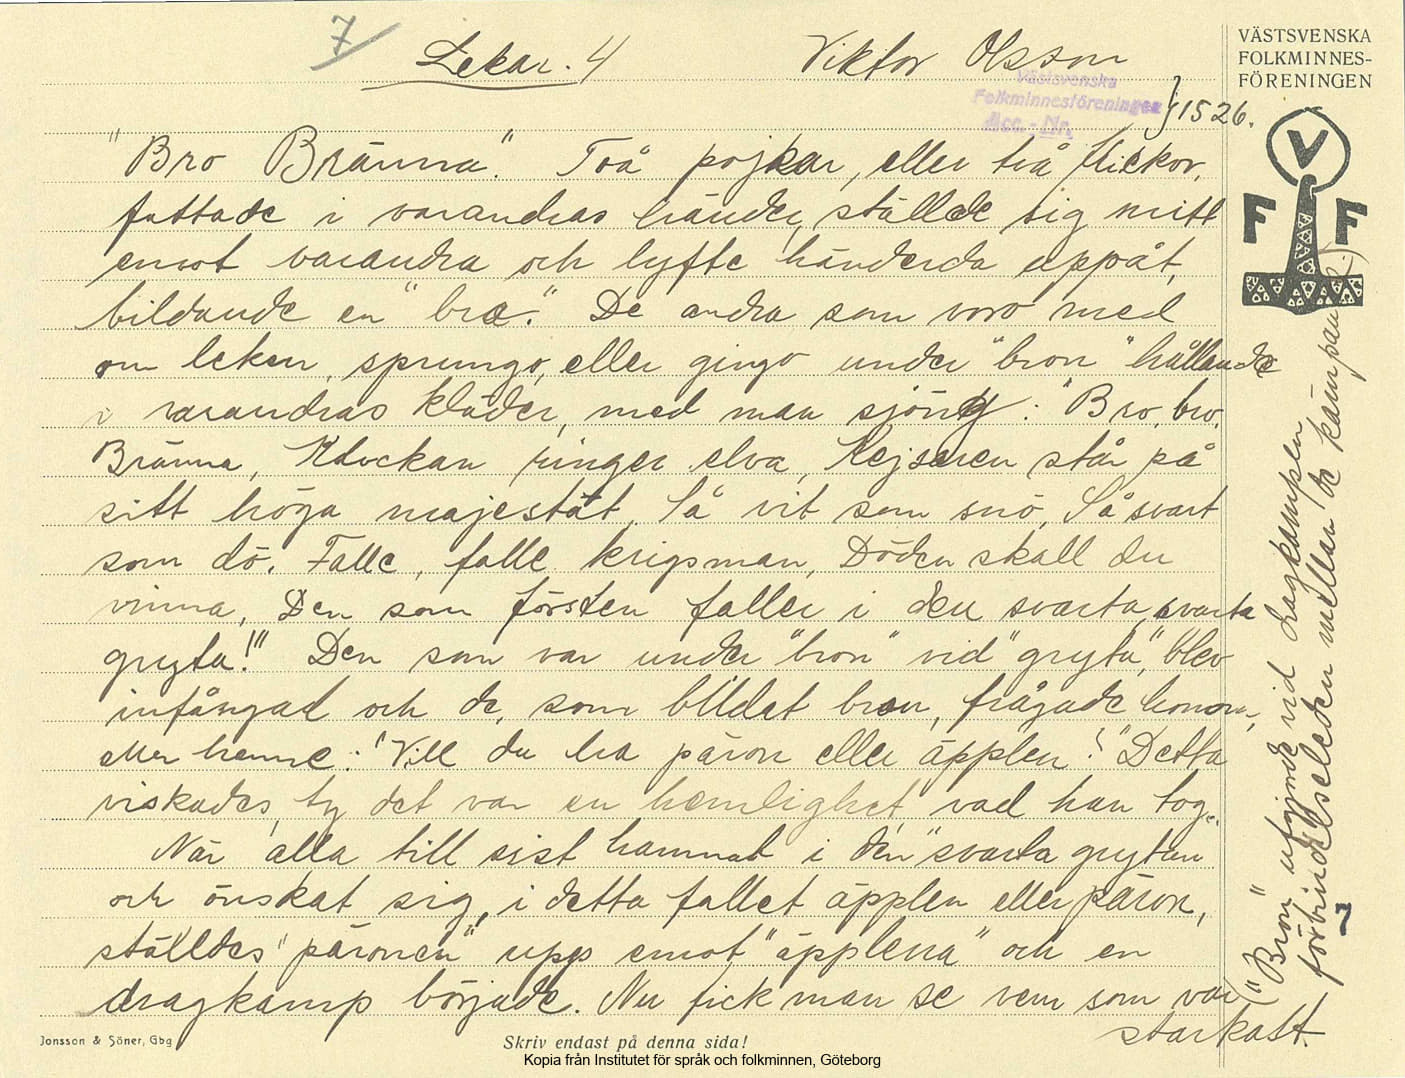 7
Lekar. 4
Viktor Olsson
VÄSTSVENSKA
FOLKMINNES-
FÖRENINGEN
Västsvenska
Folkminnesföreningen
Acc. - Nr.
} 1526.
V
F F
"Bro Bränna". Två pojkar, eller två flickor,
fattade i varandras händer, ställde sig mitt
emot varandra och lyfte händerda uppåt,
bildande en "bro". De andra som voro med
om leken, sprungo, eller gingo under "bron" hållande
i varandras kläder, med man sjöng: "Bro, bro,
Bränna, Klockan ringer elva, Kejsaren står på
sitt höga majestät, Så vit som snö, Så svart
som dö. Falle, falle krigsman, Döden skall du
vinna, Den som försten faller i den svarta, svarta
gryta!" Den som var under "bron" vid "gryta", blev
infångad och de, som bildat bron, frågade honom,
eller henne: "Vill du ha päron eller äpplen?" Detta
viskades, ty det var en hemlighet, vad han tog.
När alla till sist hamnat i den "svarta grytan
och önskat sig, i detta fallet äpplen eller päron,
ställdes "päronen" upp emot "äpplena" och en
dragkamp började. Nu fick man se vem som var
starkast.
("Bron" utgjorde vid dragkampen
förbindelseleden mellan de kämpande.)
7
Jonsson & Söner, Gbg
Skriv endast på denna sida!
Kopia från Institutet för språk och folkminnen, Göteborg